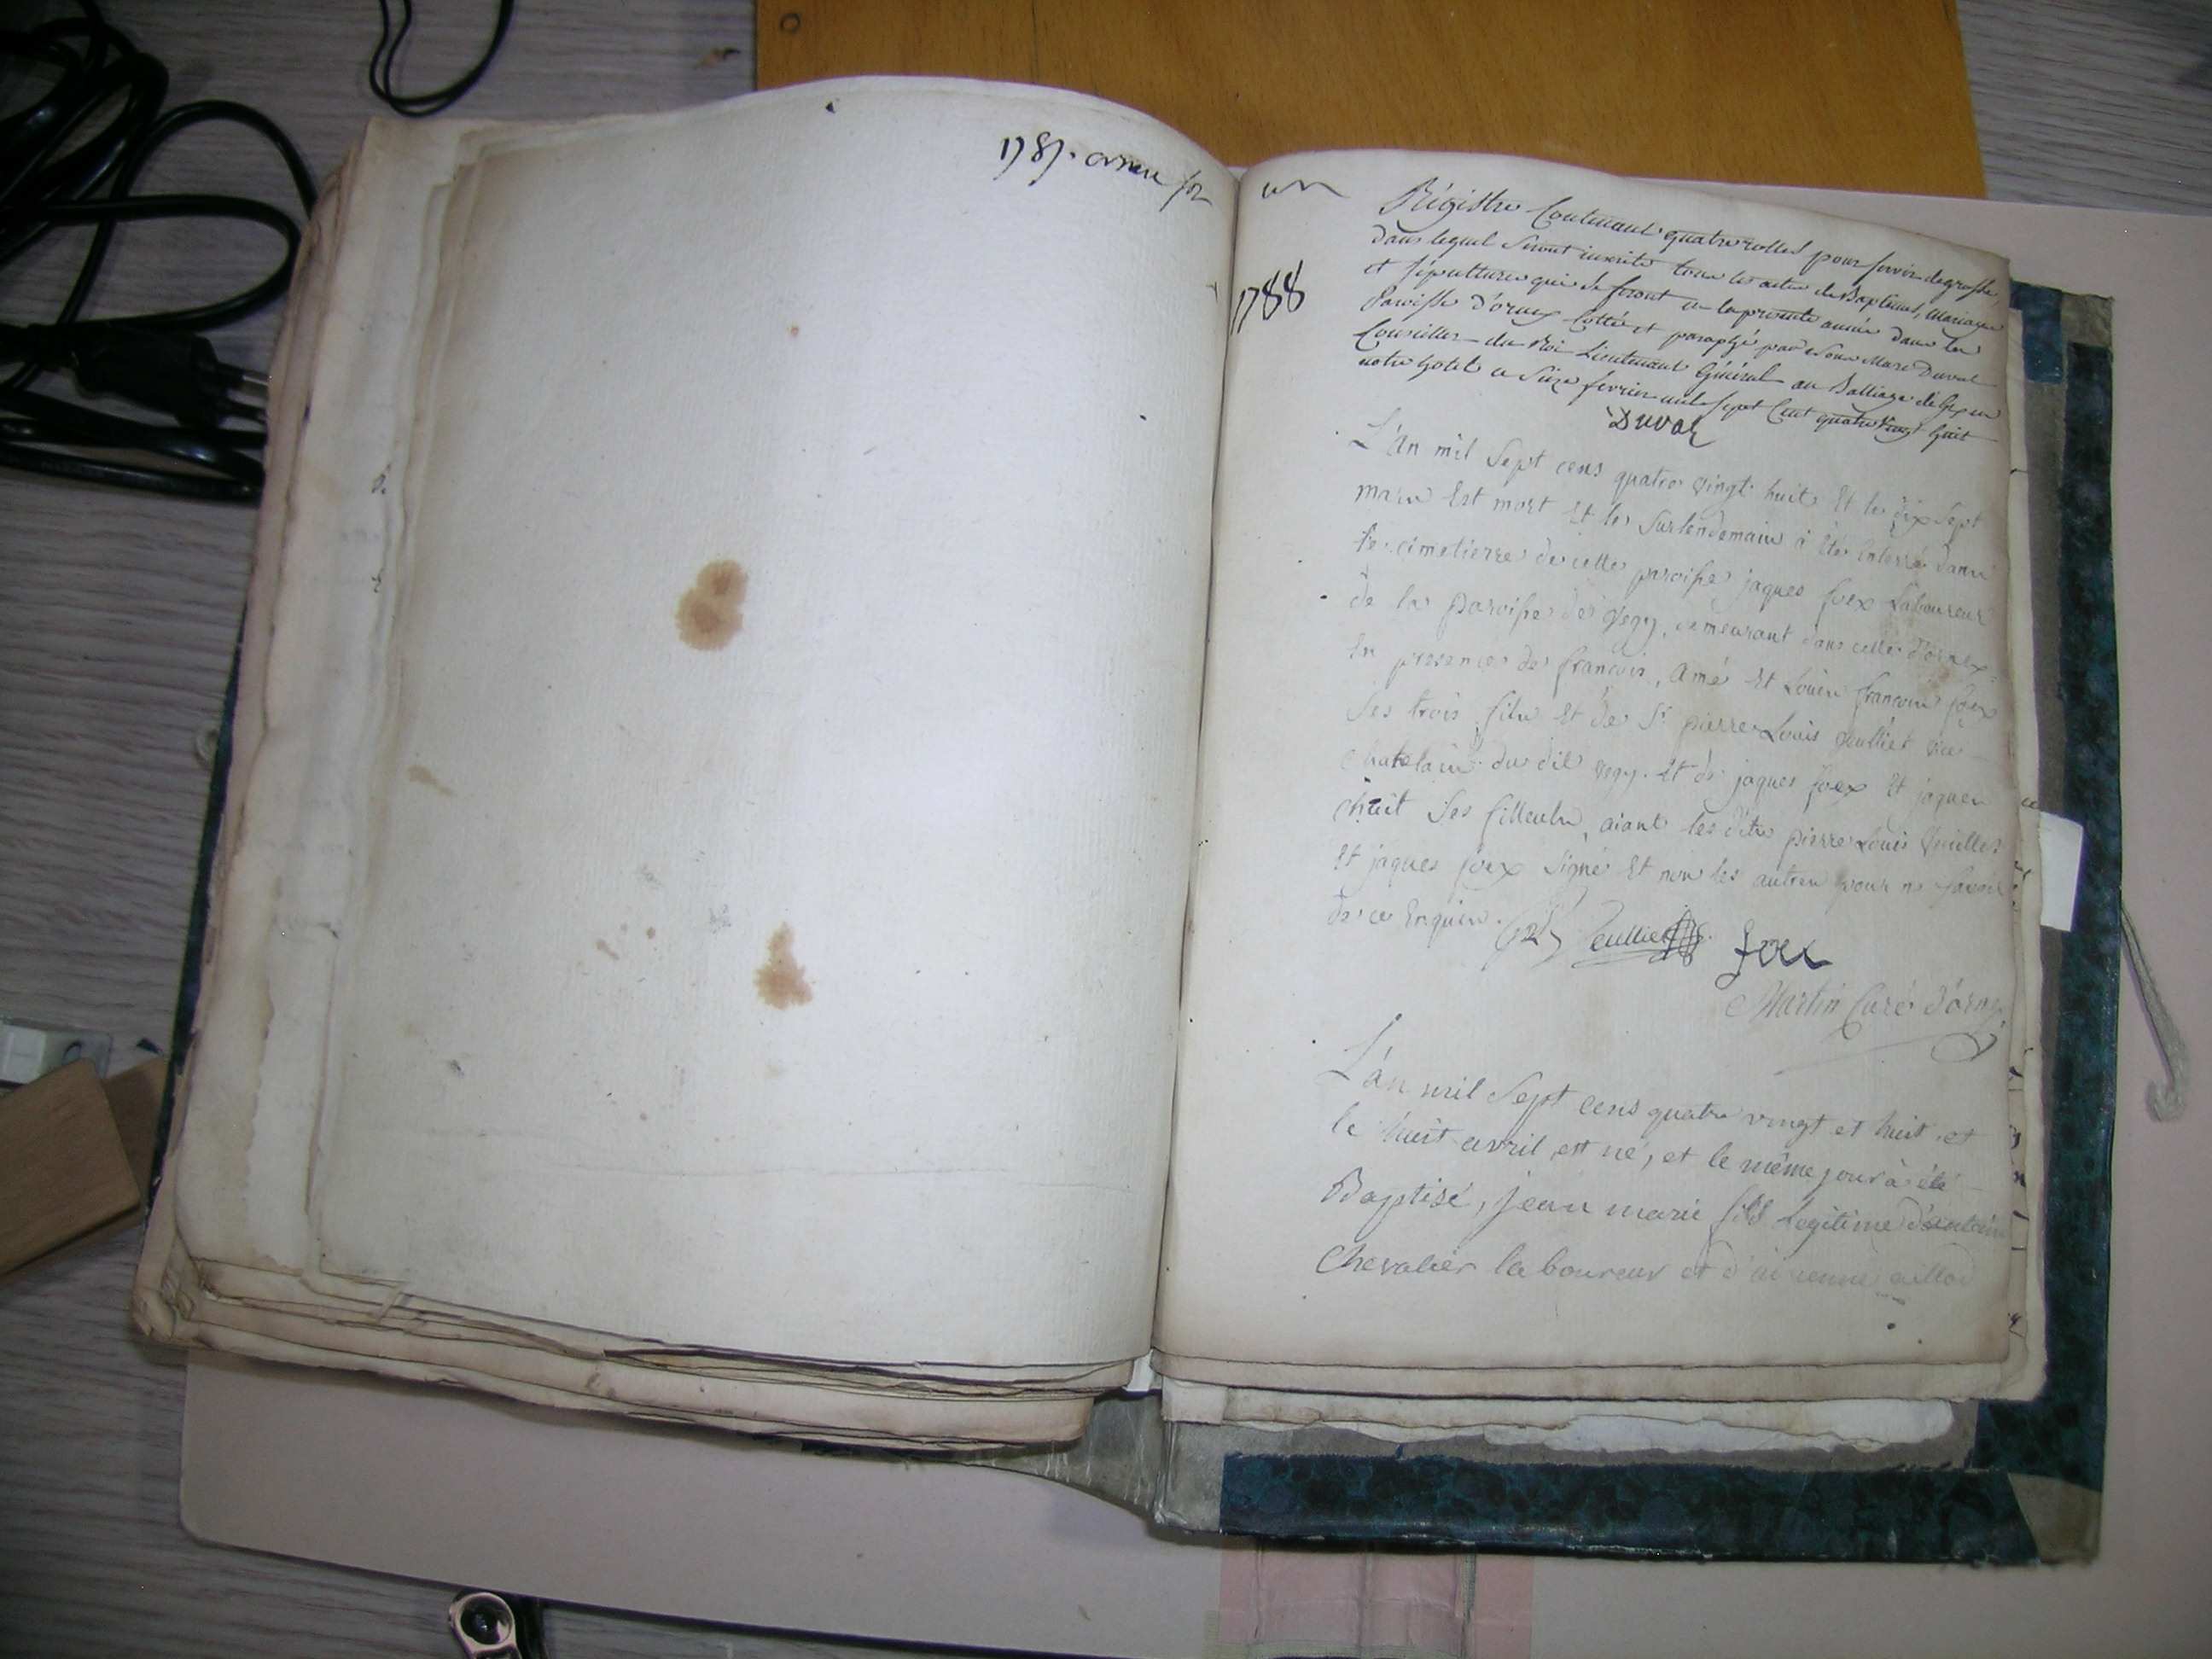 1787. ornex
un
1788
Régistre Contenant quatre rolles pour servir de grosse
dans lequel seront inscrits tous les actes de Baptêmes, Mariages
et sépultures qui se feront en la présente année dans la
Paroisse d'ornex Cotté et paraphé par Nous Marc Duval
Conseiller du Roi Lieutenant Général au Balliage de Gex en
notre hotel ce seize février mil sept Cent quatre vingt huit
Duval
L'An mil Sept cens quatre vingt huit Et le dix Sept
mars Est mort Et le surlendemain à été enterré dans
le cimetierre de cette paroisse jaques foex Laboureur
de la paroisse de Vegy, demeurant dans celle d'ornex
En presence de francois, Amé Et Louis francois foex
Ses trois fils Et de Sr. pierre Louis vice
Chatelain du dit vegy. Et de jaques foex Et jaques
Ses filleuls, aiant les dits pierre Louis
Et jaques foex Signé Et non les autres pour ne savoir
de ce Enquis.
foex
Martin Curé d'ornex
L'án mil Sept cens quatre vingt et huit et
le huit avril est né, et le même jour à été
Baptisé, jean marie fils legitime d'antoine
Chevalier laboureur et